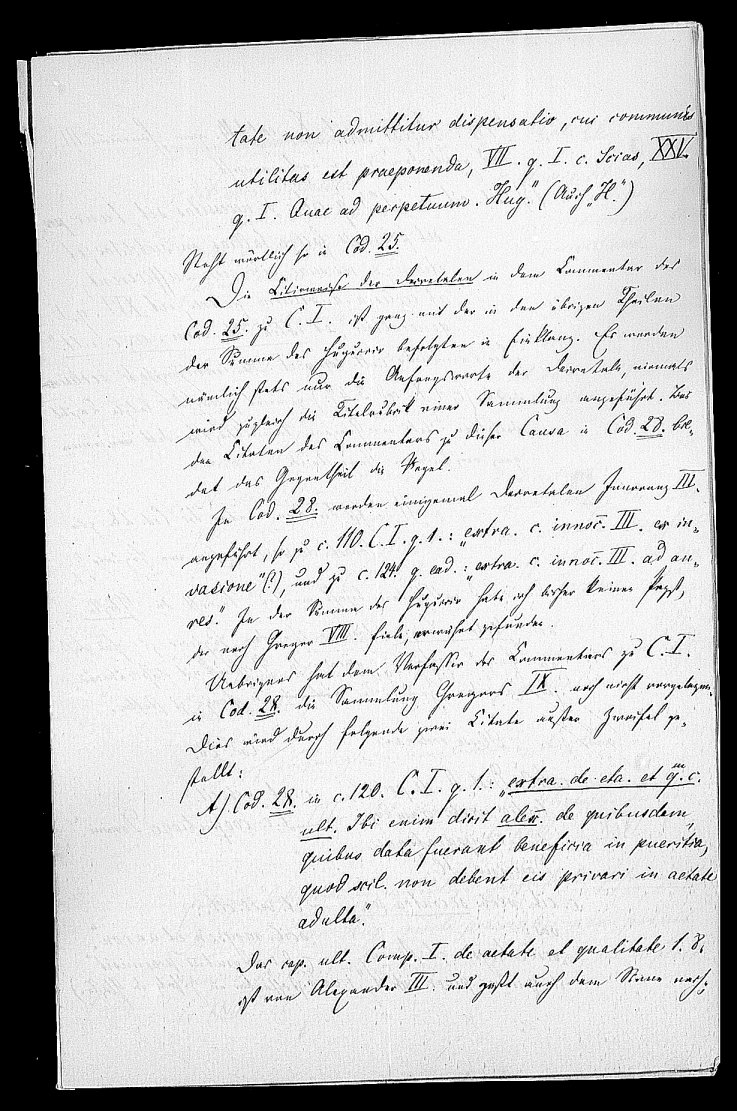 tate non admittitur dispensatio, cui communis
utilitas est praeponenda, VII. q. I. c. Scias, XXV.
q. I. Quae ad perpetuam. Hug." (Auch „H.")
Steht wörtlich so in Cod. 25.
Die Citirweise der Decretalen in dem Commentar des
Cod. 25. zu C. I. ist ganz mit der in den übrigen Theilen
der Summe des Huguccio befolgten in Einklang. Es werden
nämlich stets nur die Anfangsworte der Decretale, niemals
wird zugleich die Titelrubrik einer Sammlung angeführt. Bei
den Citaten des Commentars zu dieser Causa in Cod. 28. bil-
det das Gegentheil die Regel.
In Cod. 28. werden einigemal Decretalen Innocenz III.
angeführt, so zu c. 110. C. I. q. 1.: „extra. c. innoc. III. ex in-
vasione" (?), und zu c. 124. q. ead.: „extra. c. innoc. III. ad au-
res." In der Summe des Huguccio habe ich bisher keinen Papst,
der nach Gregor VIII. fiele, erwähnt gefunden.
Uebrigens hat dem Verfasser des Commentars zu C. I.
in Cod. 28. die Sammlung Gregors IX. noch nicht vorgelegen.
Dies wird durch folgende zwei Citate außer Zweifel ge-
stellt:
A) Cod. 28. in c. 120. C. I. q. 1.: „extra. de eta. et q.m c.
ult. Ibi enim dicit alex. de quibusdam,
quibus data fuerant beneficia in pueritia,
quod scil. non debent eis privari in aetate
adulta."
Das cap. ult. Comp. I. de aetate et qualitate 1. 8.
ist von Alexander III. und paßt auch dem Sinne nach.